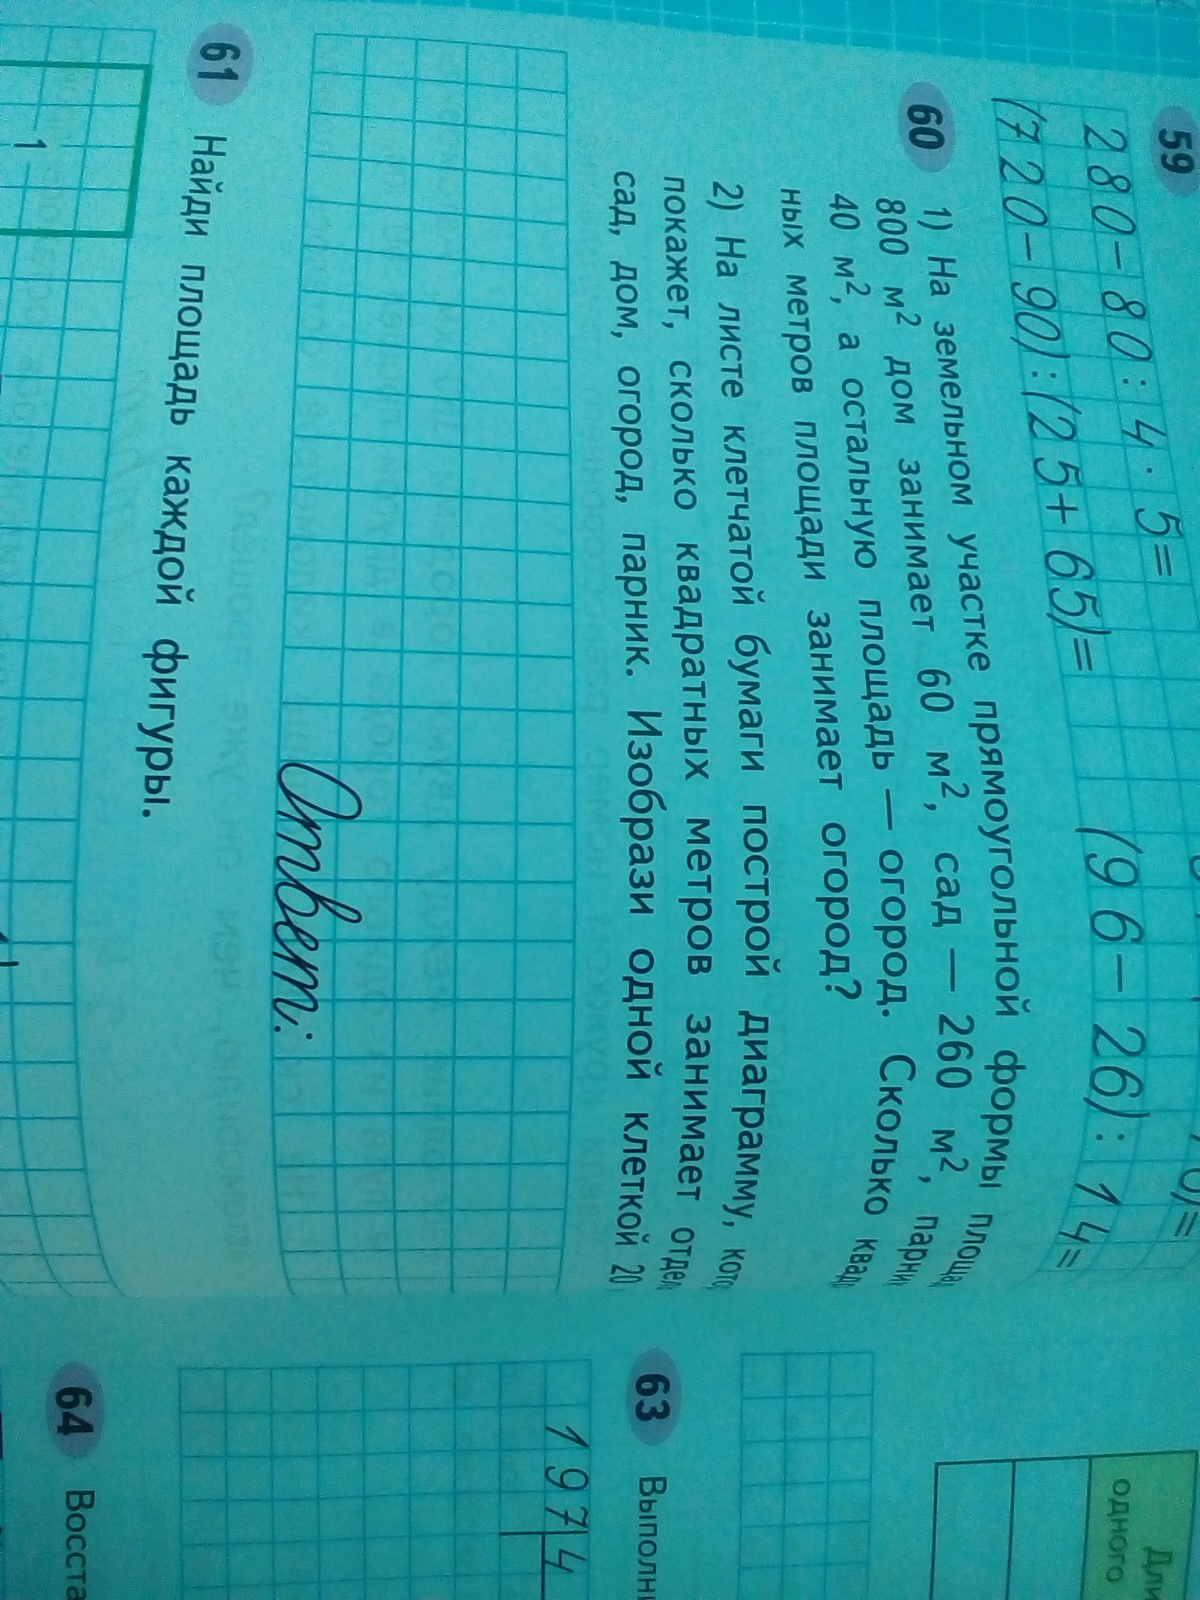 59
280-80:4·5=
(720-90):(25+65)= (96-26):14=
60 1) На земельном участке прямоугольной формы
800 м² дом занимает 60 м², сад — 260 м²,
40 м², а остальную площадь — огород. Сколько
ных метров площади занимает огород?
2) На листе клетчатой бумаги построй диаграмму,
покажет, сколько квадратных метров занимает
сад, дом, огород, парник. Изобрази одной клеткой 20
Ответ:
61 Найди площадь каждой фигуры.
1
Дли
одного
63 Выполни
197 4
64 Восста